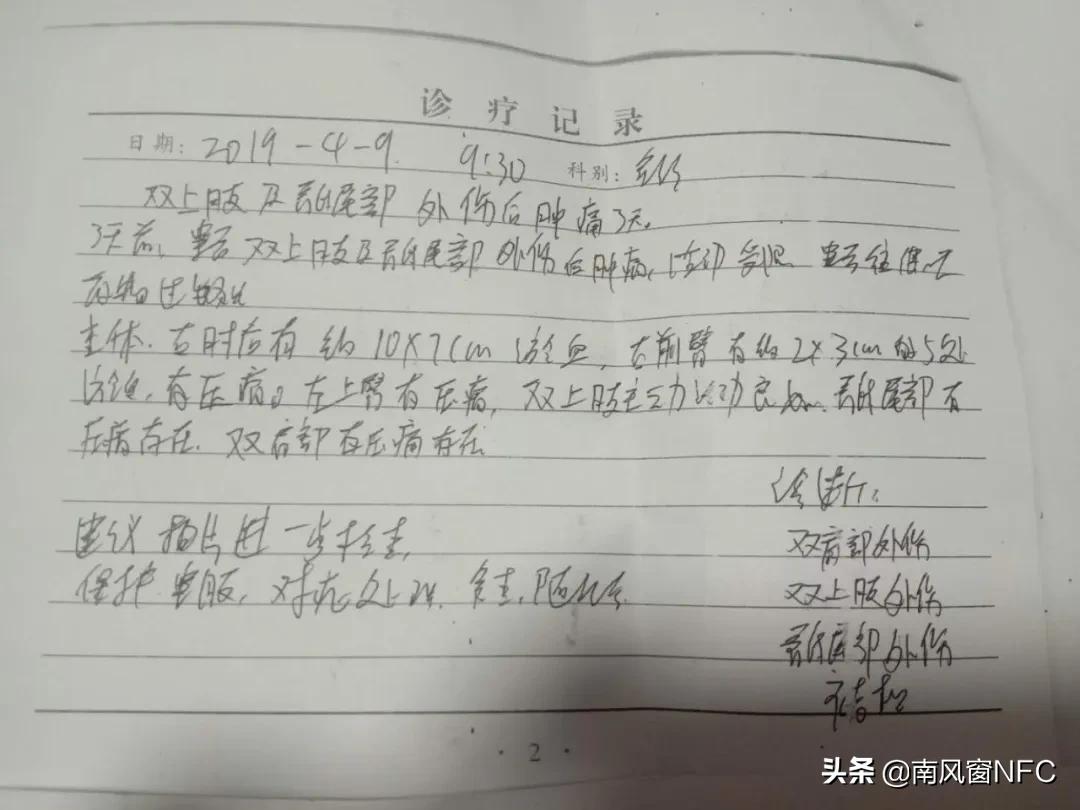 诊疗记录
日期: 2019-4-9. 9:30 科别:
双上肢及骶尾部外伤后肿痛3天。
3天前, 患者双上肢及骶尾部外伤后肿痛,活动受限 患者往
查体. 右肘后有约10×7cm淤血, 右前臂有约2×3cm的5处
淤血, 有压痛。左上臂有压痛, 双上肢主动活动良好. 骶尾部有
压痛存在. 双肩部有压痛存在
诊断:
建议拍片进一步检查,
双肩部外伤
保护患肢, 对症处理.
双上肢外伤
骶尾部外伤
· 2 ·
头条 @南风窗NFC